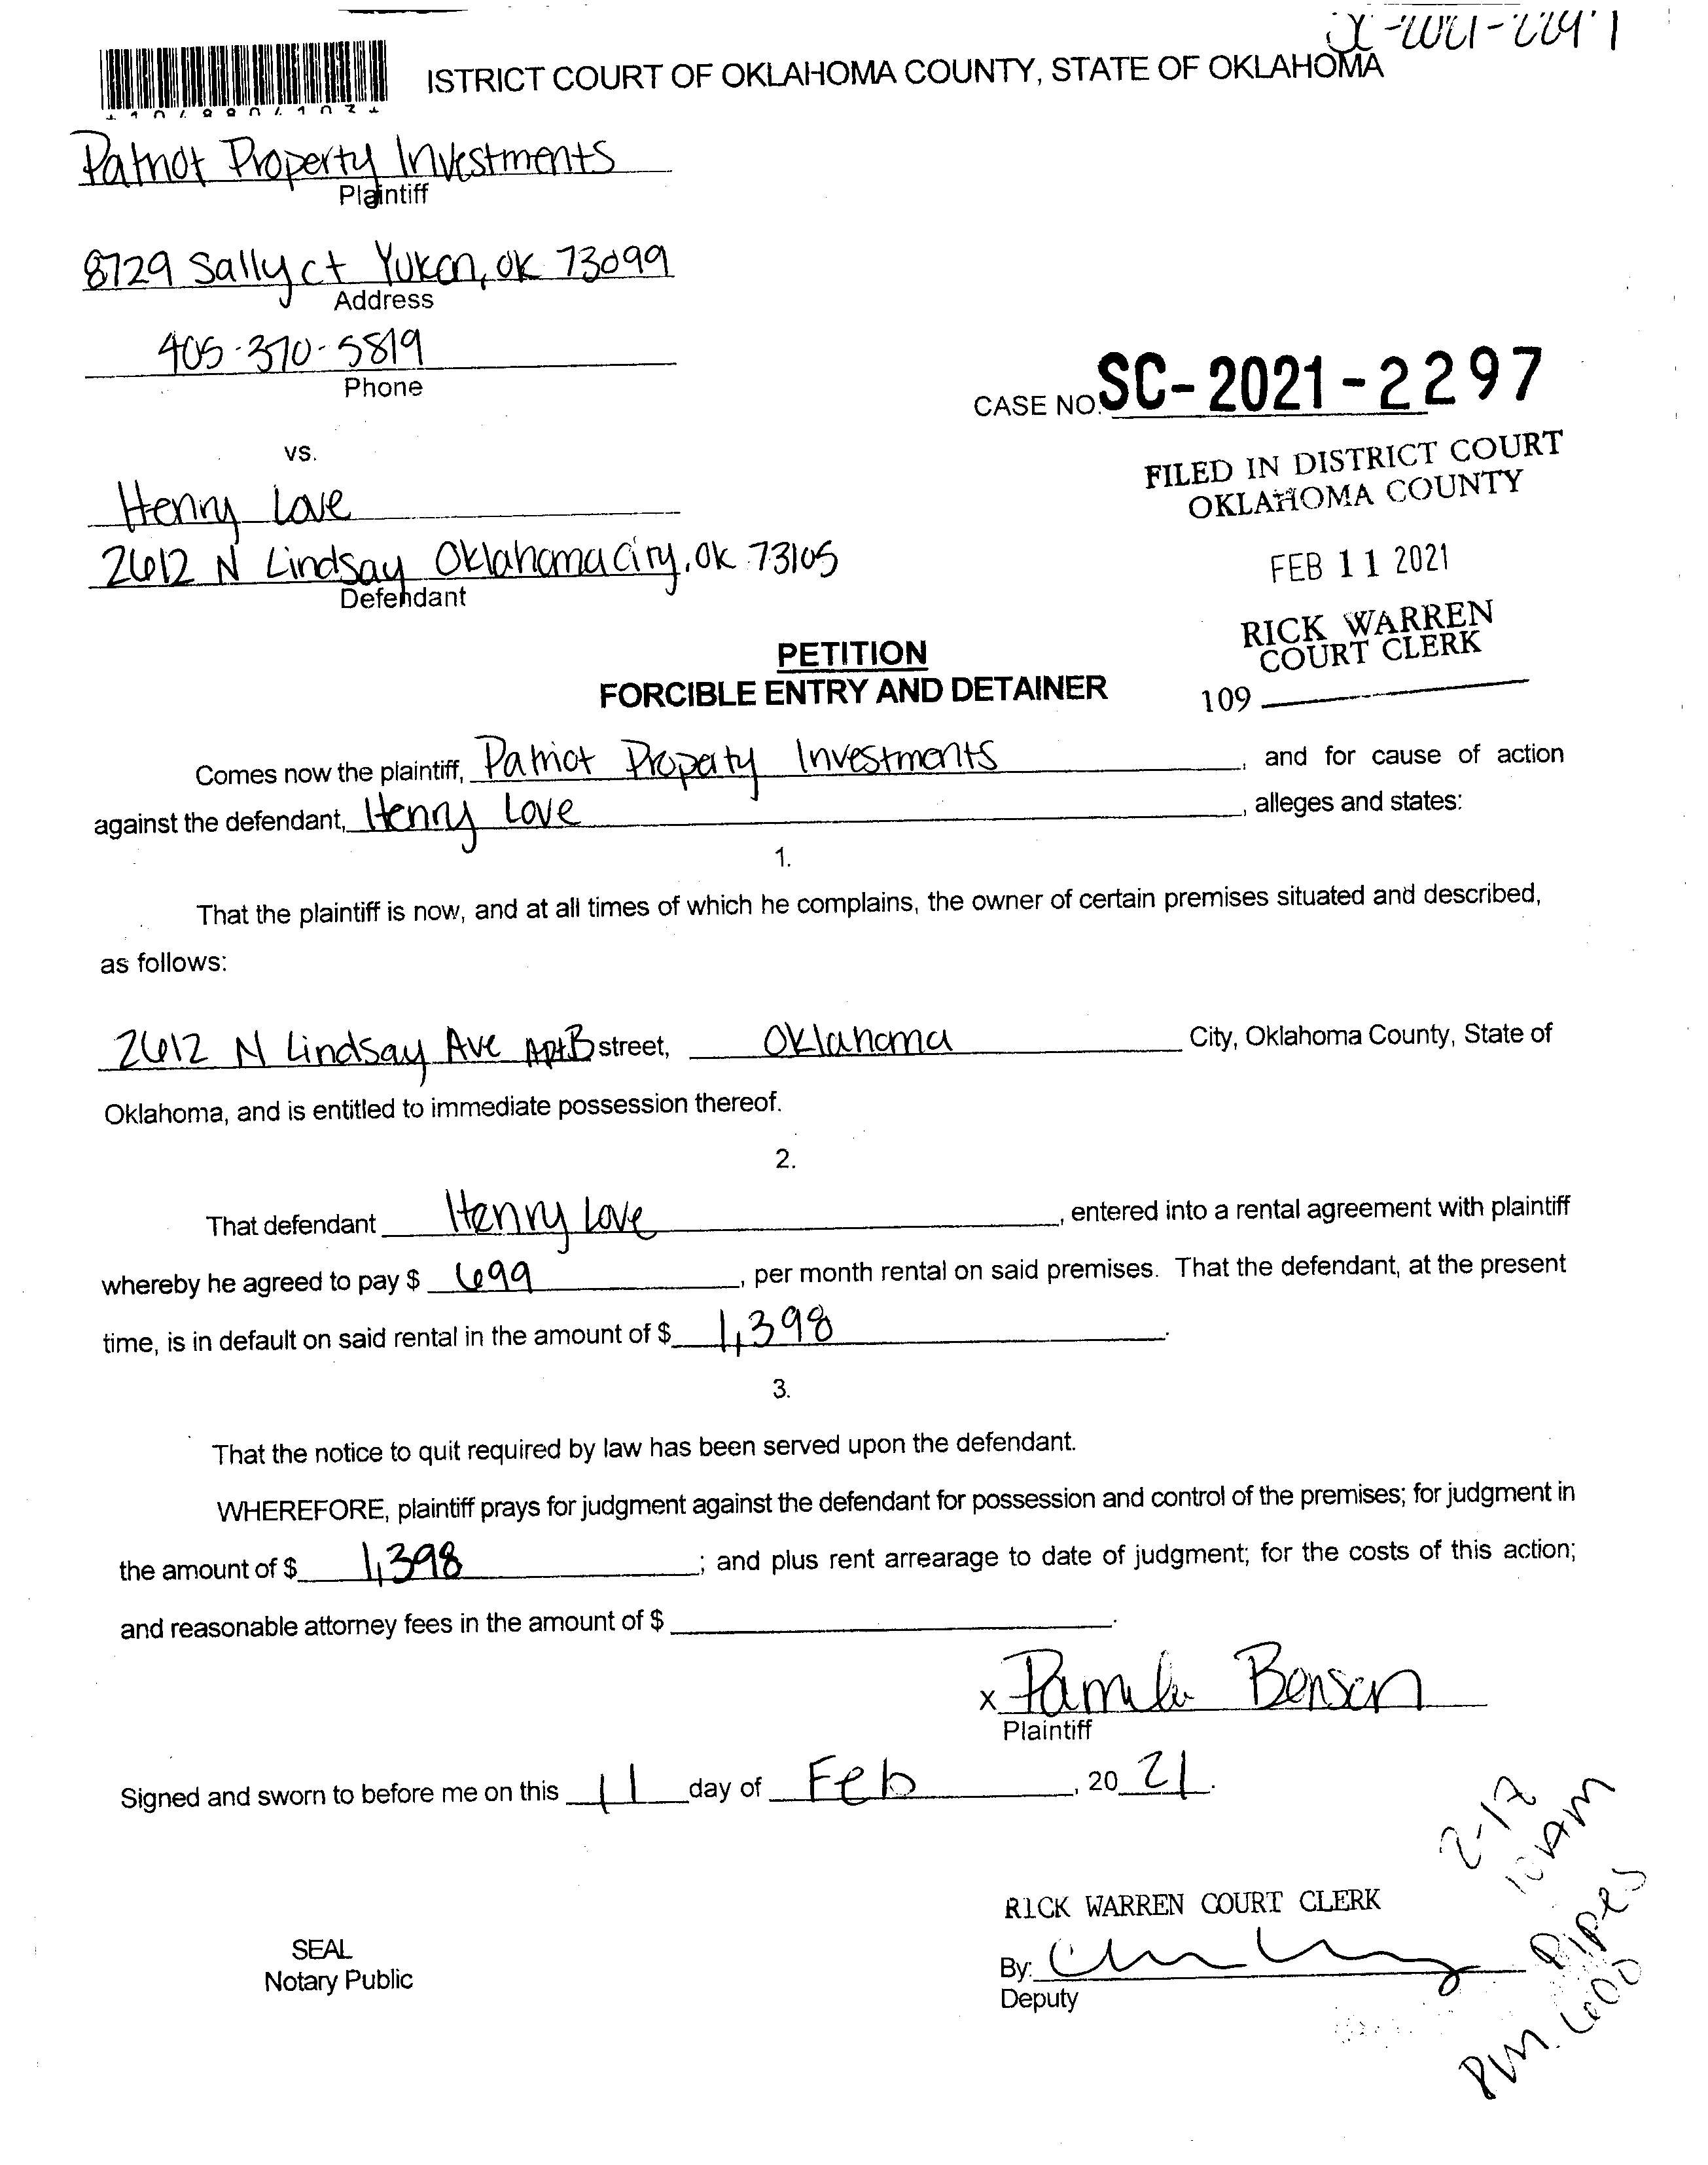 SC-2021-2297
ISTRICT COURT OF OKLAHOMA COUNTY, STATE OF OKLAHOMA
Patriot Property Investments
Plaintiff
8729 Sally ct Yukon, OK 73099
Address
405-370-5819
Phone
CASE NO. SC-2021-2297
vs.
FILED IN DISTRICT COURT
OKLAHOMA COUNTY
Henry Love
2612 N Lindsay Oklahoma City, OK 73105
Defendant
FEB 11 2021
RICK WARREN
COURT CLERK
109
PETITION
FORCIBLE ENTRY AND DETAINER
Comes now the plaintiff, Patriot Property Investments, and for cause of action
against the defendant, Henry Love, alleges and states:
1.
That the plaintiff is now, and at all times of which he complains, the owner of certain premises situated and described,
as follows:
2612 N Lindsay Ave Apt B street, Oklahoma City, Oklahoma County, State of
Oklahoma, and is entitled to immediate possession thereof.
2.
That defendant Henry Love, entered into a rental agreement with plaintiff
whereby he agreed to pay $ 699, per month rental on said premises. That the defendant, at the present
time, is in default on said rental in the amount of $ 1,398.
3.
That the notice to quit required by law has been served upon the defendant.
WHEREFORE, plaintiff prays for judgment against the defendant for possession and control of the premises; for judgment in
the amount of $ 1,398; and plus rent arrearage to date of judgment; for the costs of this action;
and reasonable attorney fees in the amount of $ .
x Pamela Benson
Plaintiff
Signed and sworn to before me on this 11 day of Feb, 2021.
2-17
10 AM
Pipes
RM 600
RICK WARREN COURT CLERK
SEAL
Notary Public
By:
Deputy